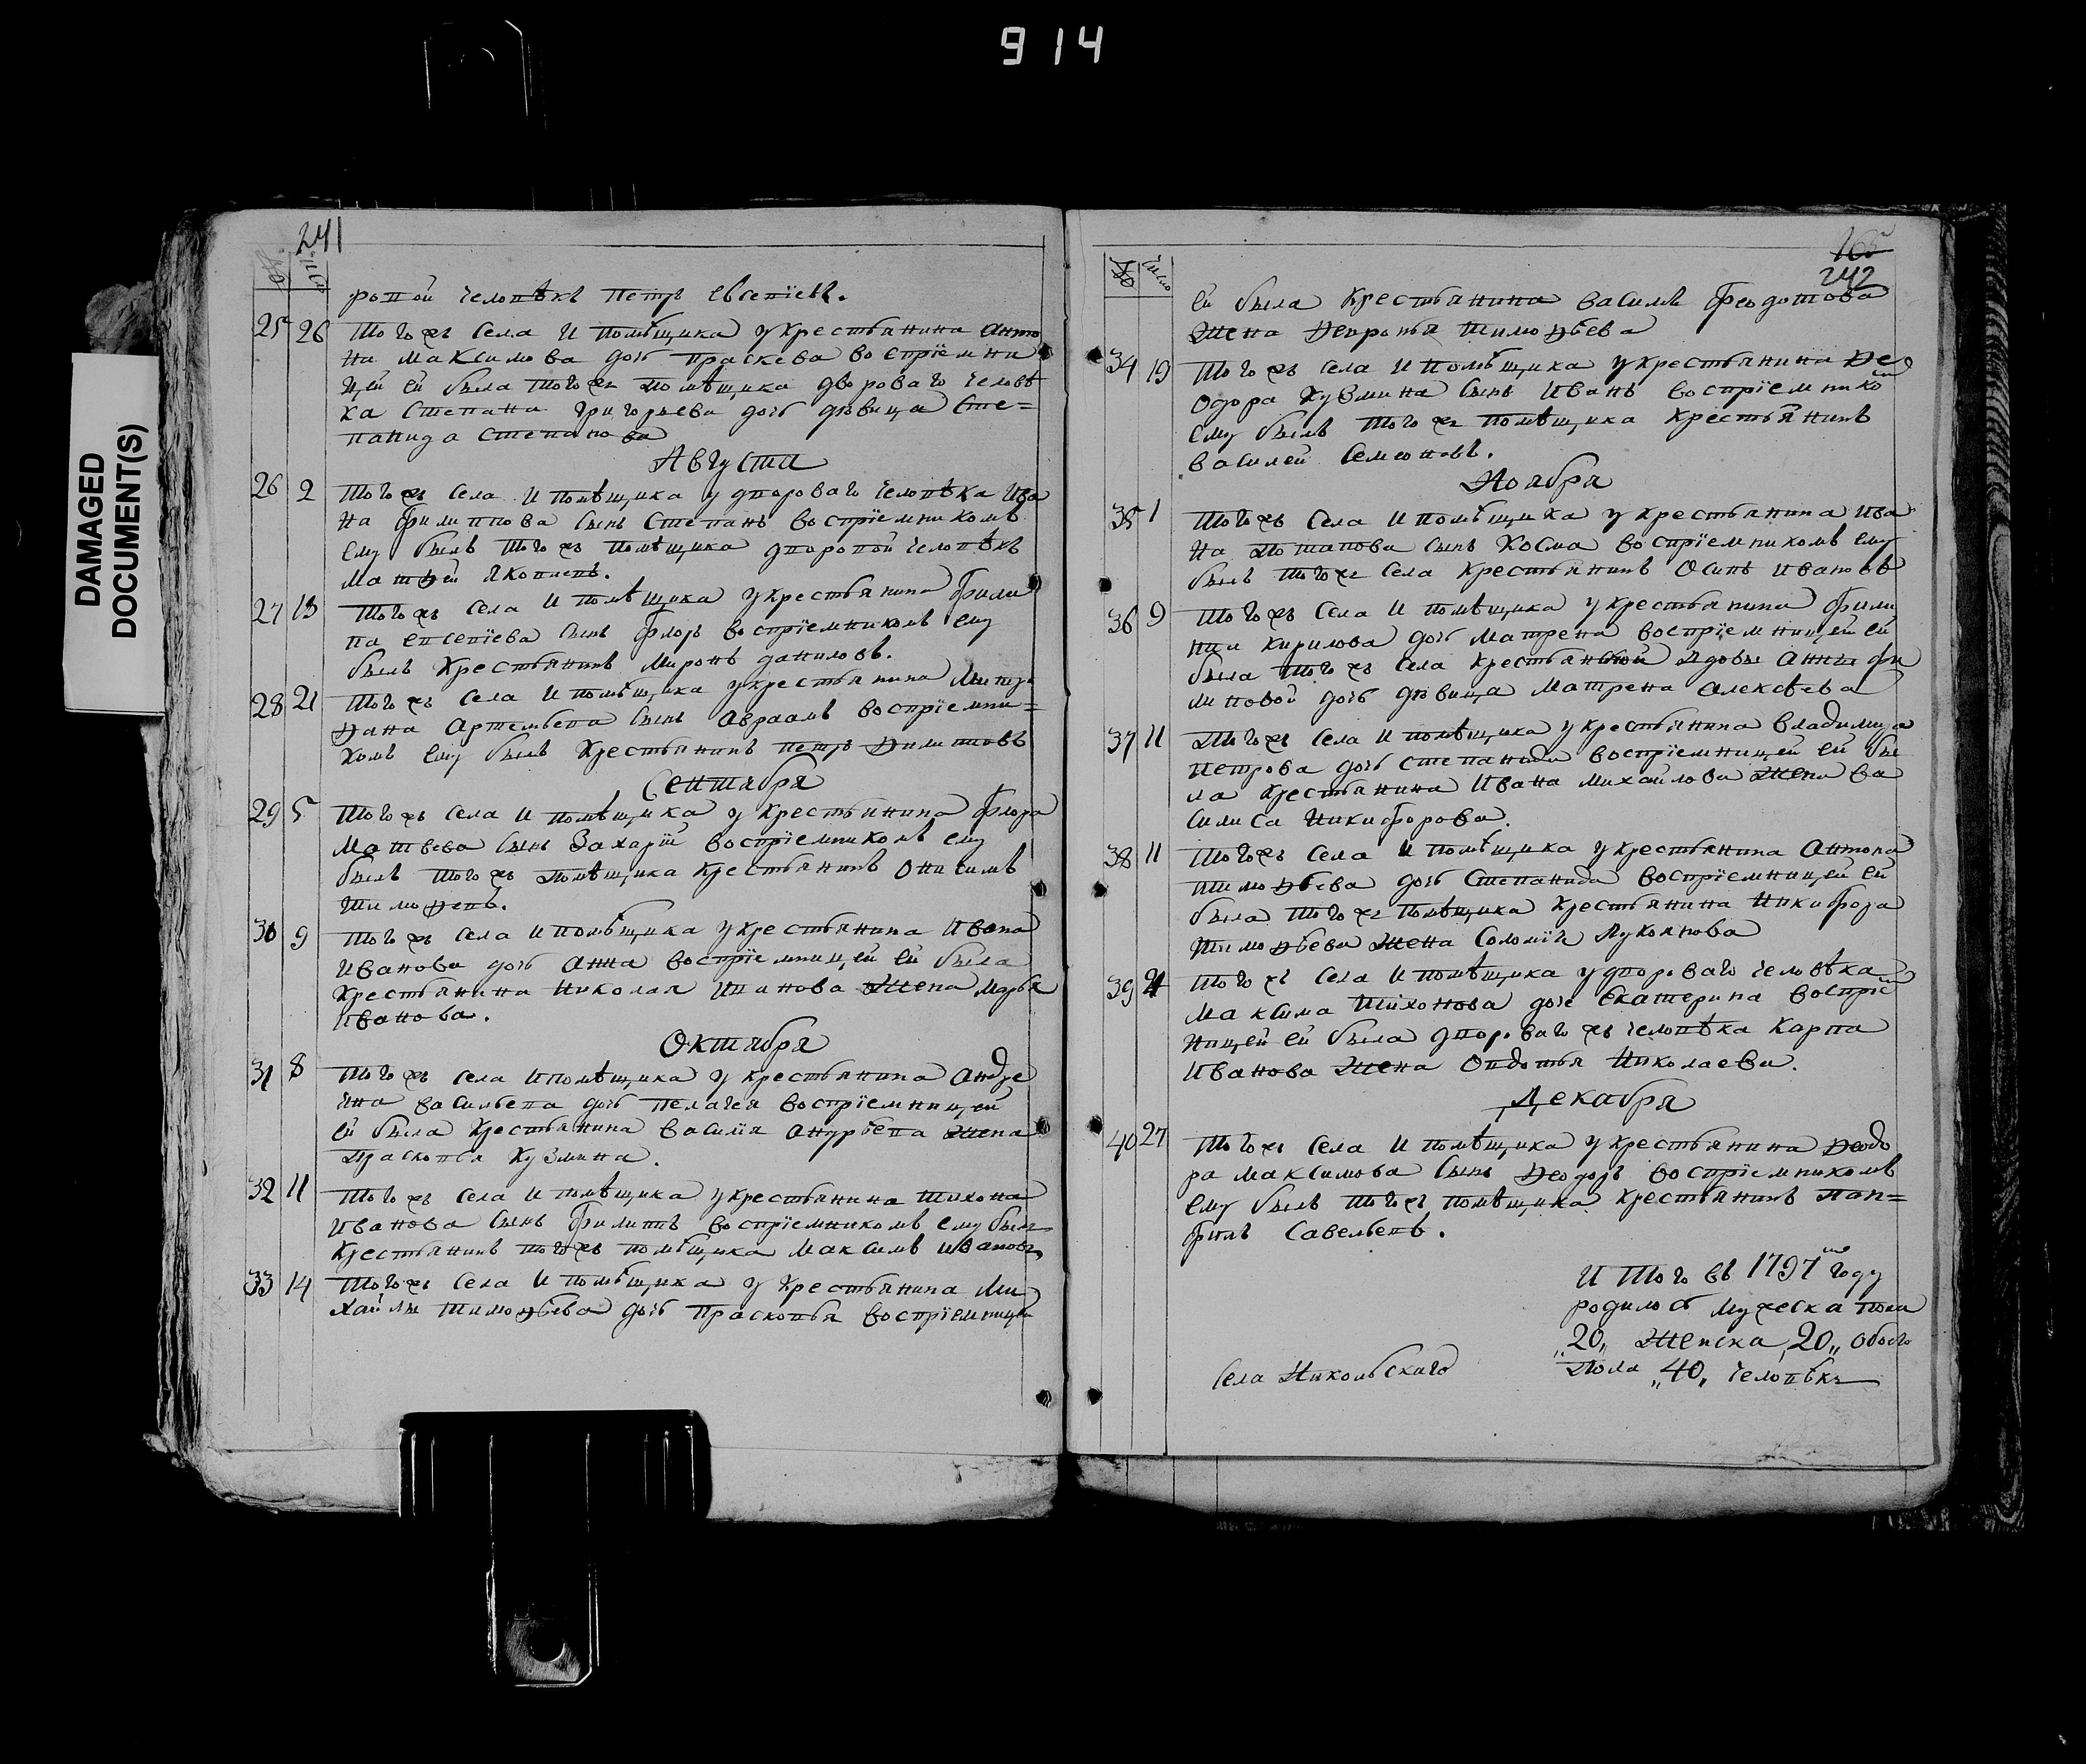 914
DAMAGED
DOCUMENT(S)
241
ровой человѣкъ Петръ Евсевіевъ.
25 26 тогожъ села и помѣщика у крестьянина Анто
на Максимова дочь Праскева воспріемни
цей ей была тогожъ помѣщика двороваго человѣ
ка Степана Григорьева дочь дѣвица Сте=
панида Степанова
Августа
26 2 тогожъ села и помѣщика у двороваго человѣка Ива
на Филиппова сынъ Степанъ воспріемникомъ
ему былъ тогожъ помѣщика дворовой человѣкъ
Матѳей Яковлевъ.
27 13 тогожъ села и помѣщика у крестьянина Фили
па Евсевіева сынъ Флоръ воспріемникомъ ему
былъ крестьянинъ Миронъ Даниловъ.
28 21 тогожъ села и помѣщика у крестьянина Митро
ѳана Артемьева сынъ Авраамъ воспріемни=
комъ ему былъ крестьянинъ Петръ Ѳилиповъ
Сентября
29 5 тогожъ села и помѣщика у крестьянина Флора
Матвева сынъ Захарій воспріемникомъ ему
былъ тогожъ помѣщика крестьянинъ Онисимъ
Тимоѳевъ.
30 9 тогожъ села и помѣщика у крестьянина Ивана
Иванова дочь Анна воспріемницей ей была
крестьянина Николая Иванова жена Марья
Иванова.
Октября
31 8 тогожъ села и помѣщика у крестьянина Андре
яна Васильева дочь Пелагея воспріемницей
ей была крестьянина Василія Андрѣева жена
Прасковья Кузмина.
32 11 тогожъ села и помѣщика у крестьянина Тихона
Иванова сынъ Филипъ воспріемникомъ ему былъ
крестьянинъ тогожъ помѣщика Максимъ Ивановъ
33 14 тогожъ села и помѣщика у крестьянина Ми
хайлы Тимоѳѣева дочь Прасковья воспріемницей
242
число
ей была крестьянина Василія Феодотова
жена Ѳевронья Тимоѳѣева
34 19 тогожъ села и помѣщика у крестьянина Ѳе
одора Кузмина сынъ Иванъ воспріемнико
ему былъ тогожъ помѣщика крестьянинъ
Василей Семеновъ.
Ноября
35 1 тогожъ села и помѣщика у крестьянина Ива
на Потапова сынъ Косма воспріемникомъ ему
былъ тогожъ села крестьянинъ Осипъ Ивановъ
36 9 тогожъ села и помѣщика у крестьянина Фили
па Кирилова дочь Матрена воспріемницей ей
была тогожъ села крестьянской вдовы Анны Фи
линовой дочь дѣвица Матрена Алексѣева
37 11 тогожъ села и помѣщика у крестьянина Владимира
Петрова дочь Степанида воспріемницей ей бы
ла крестьянина Ивана Михайлова жена Ва
силиса Никифорова.
38 11 тогожъ села и помѣщика у крестьянина Антона
Тимоѳѣева дочь Степанида воспріемницей ей
была тогожъ помѣщика крестьянина Никифора
Тимоѳѣева жена Соломія Лукоянова
39 21 тогожъ села и помѣщика у двороваго человѣка
Максима Тихонова дочь Екатерина воспріем
ницей ей была двороваго жъ человѣка Карпа
Иванова жена Овдотья Николаева.
Декабря
40 27 тогожъ села и помѣщика у крестьянина Ѳеодо
ра Максимова сынъ Ѳеодоръ воспріемникомъ
ему былъ тогожъ помѣщика крестьянинъ Лав=
ринъ Савельевъ.
И того въ 1797мъ году
родилось мужеска пола
„20„ женска „20„ обоего
пола „40„ человѣкъ
Села Никольскаго